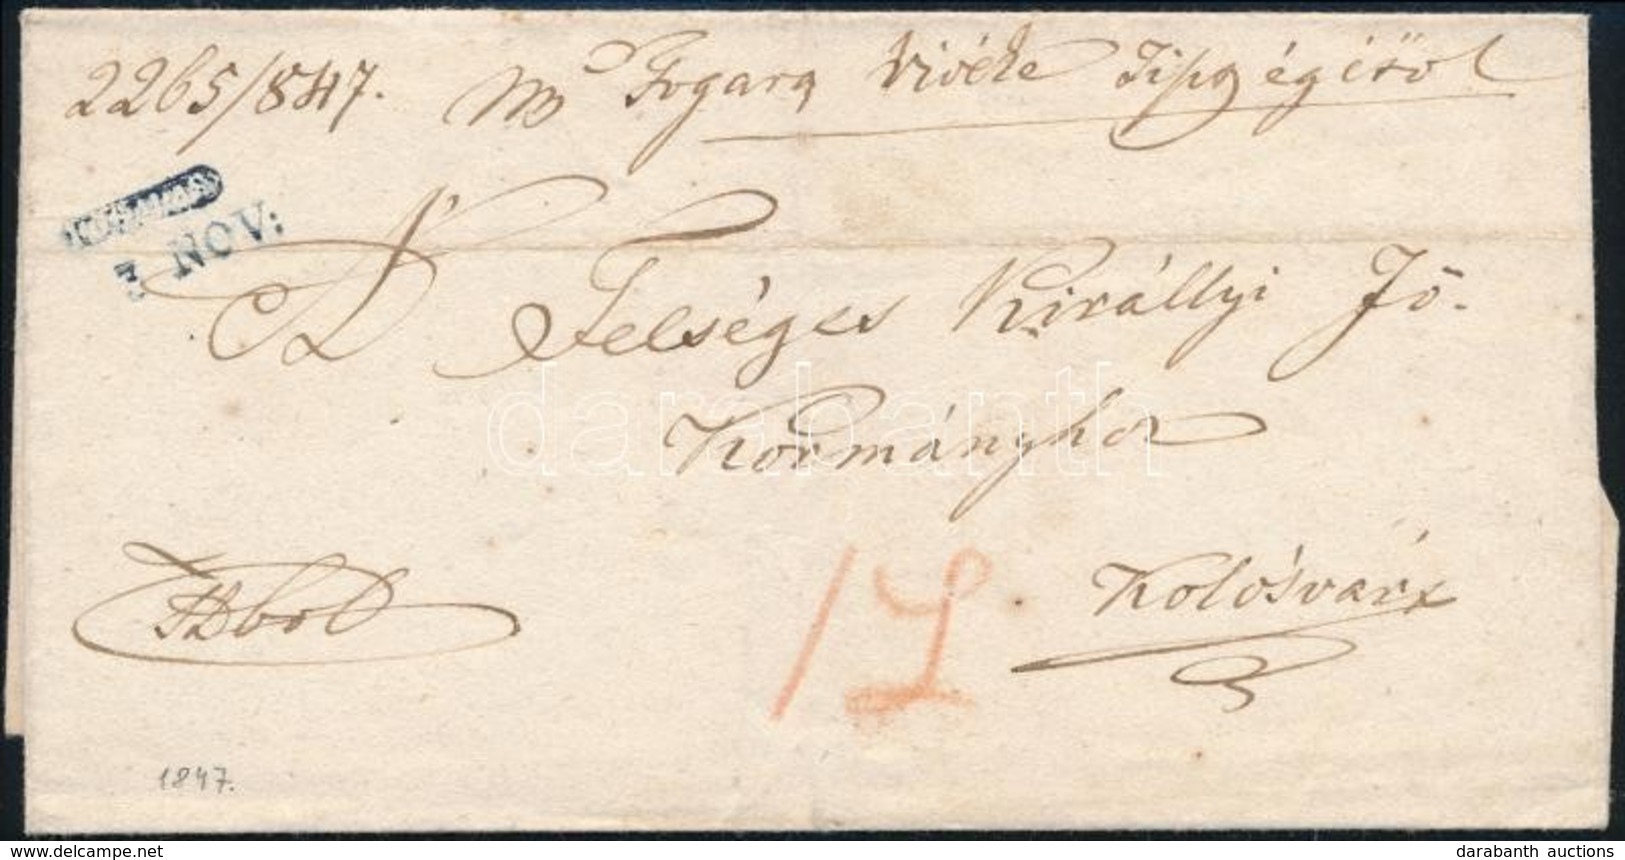 2265/847. Fogara vidéke Tiszségétől
NOV:
A' Felséges Királlyi Fő-
Kormányhoz
Hbol
1L
Kolósvárt
1847.
darabanth
www.delcampe.net
darabanth auctions